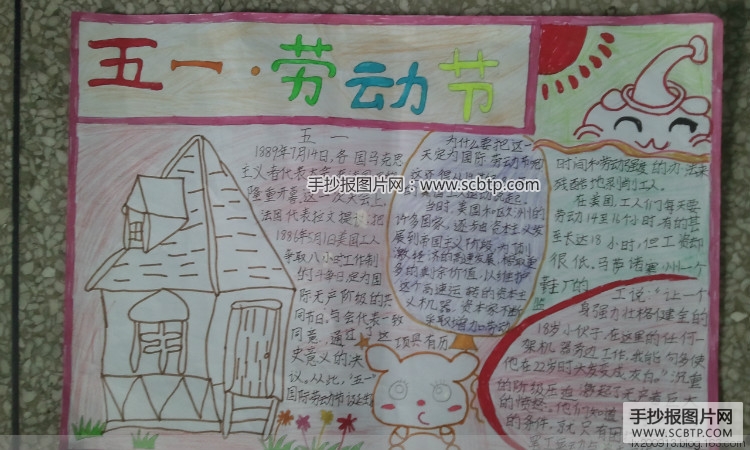 五一·劳动节
五一
1889年7月14日,各国马克思
主义者代表
隆重开幕,这一次大会上,
法国代表拉文提议:把
1886年5月1日美国工人
争取八小时工作制
的斗争日,定为国
际无产阶级的共
同节日。与会代表一致
同意,通过了这
项具有历
史意义的决
议。从此,"五一"
国际劳动节诞生
为什么要把这一
天定为国际劳动节呢
当时,美国和欧洲的
许多国家,逐步由资本主义发
展到帝国主义阶段,为了刺
激经济的高速发展,榨取更
多的剩余价值,以维护
这个高速运转的资本主
义机器,资本家不断
采取增加劳动
时间和劳动强度的办法来
残酷地剥削工人。
在美国,工人们每天要
劳动14至16个小时,有的甚
至长达18小时,但工资却
很低。马萨诸塞州一个
鞋厂的监工说:"让一个
身强力壮格健全的
18岁小伙子,在这里的任何一
架机器旁边工作,我能够使
他在22岁时头发变成灰白。"沉重
的阶级压迫激起了无产者巨大
的愤怒。他们知道
的条件,就只有团
手抄报图片网:www.scbtp.com
手抄报图片网
WWW.SCBTP.COM